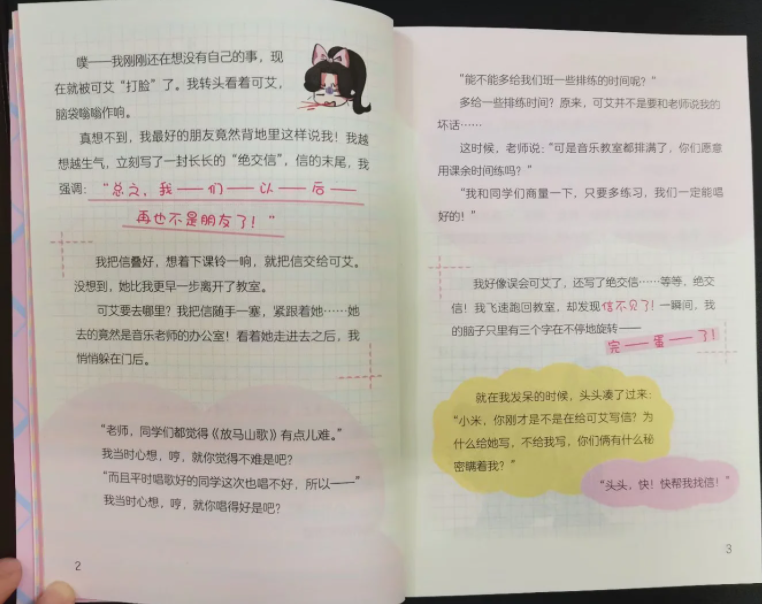 噗——我刚刚还在想没有自己的事，现
在就被可艾“打脸”了。我转头看着可艾，
脑袋嗡嗡作响。
真想不到，我最好的朋友竟然背地里这样说我！我越
想越生气，立刻写了一封长长的“绝交信”，信的末尾，我
强调：“总之，我——们——以——后——
再也不是朋友了！”
我把信叠好，想着下课铃一响，就把信交给可艾。
没想到，她比我更早一步离开了教室。
可艾要去哪里？我把信随手一塞，紧跟着她……她
去的竟然是音乐老师的办公室！看着她走进去之后，我
悄悄躲在门后。
“老师，同学们都觉得《放马山歌》有点儿难。”
我当时心想，哼，就你觉得不难是吧？
“而且平时唱歌好的同学这次也唱不好，所以——”
我当时心想，哼，就你唱得好是吧？
2
“能不能多给我们班一些排练的时间呢？”
多给一些排练时间？原来，可艾并不是要和老师说我的
坏话……
这时候，老师说：“可是音乐教室都排满了，你们愿意
用课余时间练吗？”
“我和同学们商量一下，只要多练习，我们一定能唱
好的！”
我好像误会可艾了，还写了绝交信……等等，绝交
信！我飞速跑回教室，却发现信不见了！一瞬间，我
的脑子只里有三个字在不停地旋转——
完——蛋——了！
就在我发呆的时候，头头凑了过来：
“小米，你刚才是不是在给可艾写信？为
什么给她写，不给我写，你们俩有什么秘
密瞒着我？”
“头头，快！快帮我找信！”
3